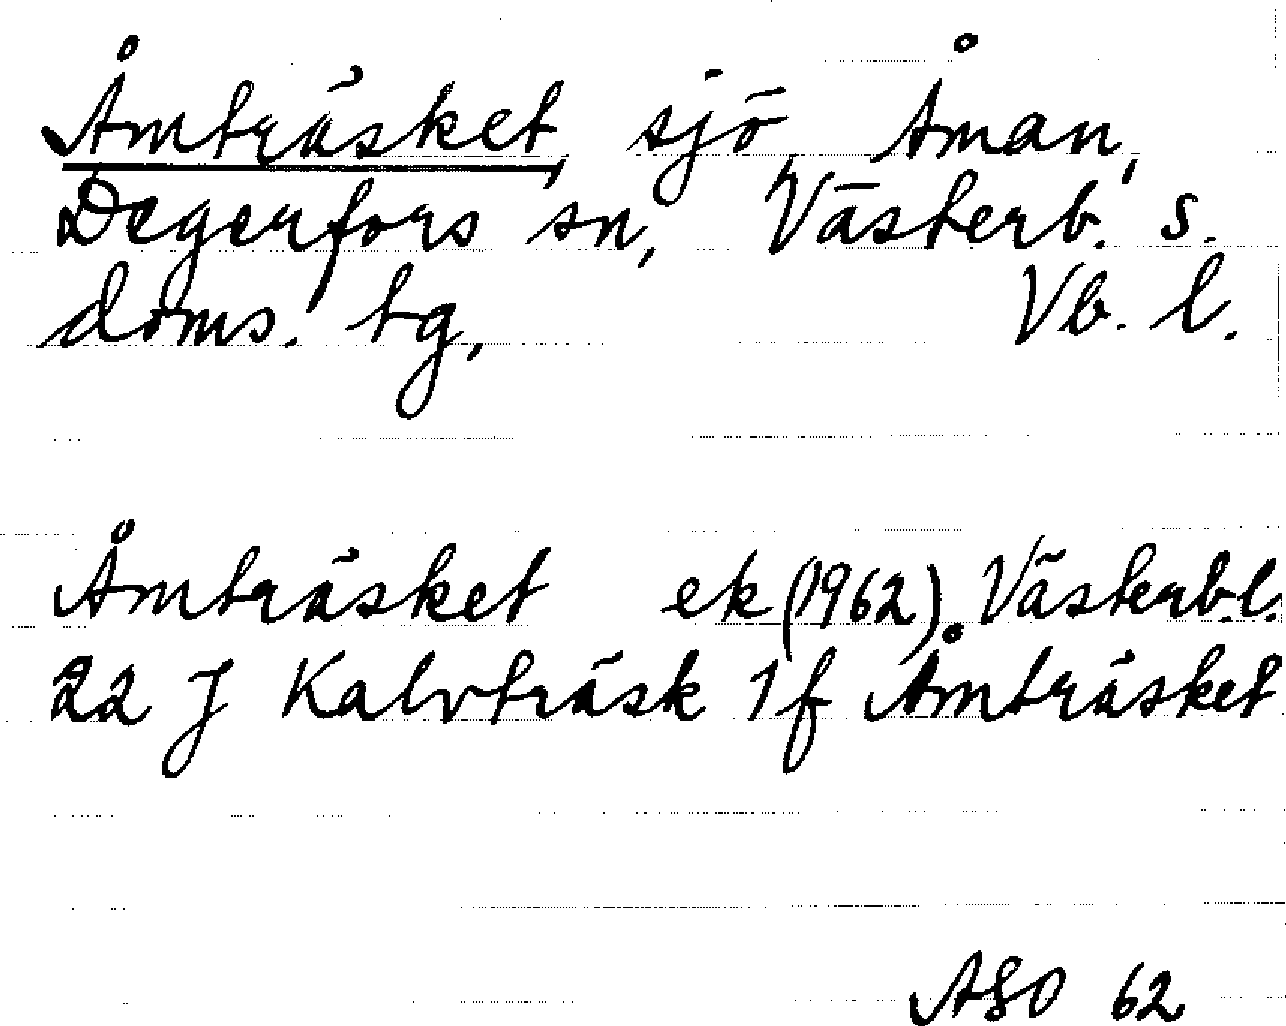 Åmträsket, sjö Åman,
Degerfors sn, Västerb. s.
doms. tg, Vb. l.
Åmträsket ek (1962) Västerb.l.
22 J Kalvträsk 1f Åmträsket
ASO 62